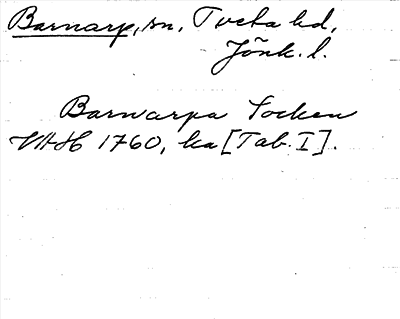 Barnarp, sn, Tveta hd,
Jönk. l.
Barnarpa Socken
VAH 1760, ka [Tab. I].